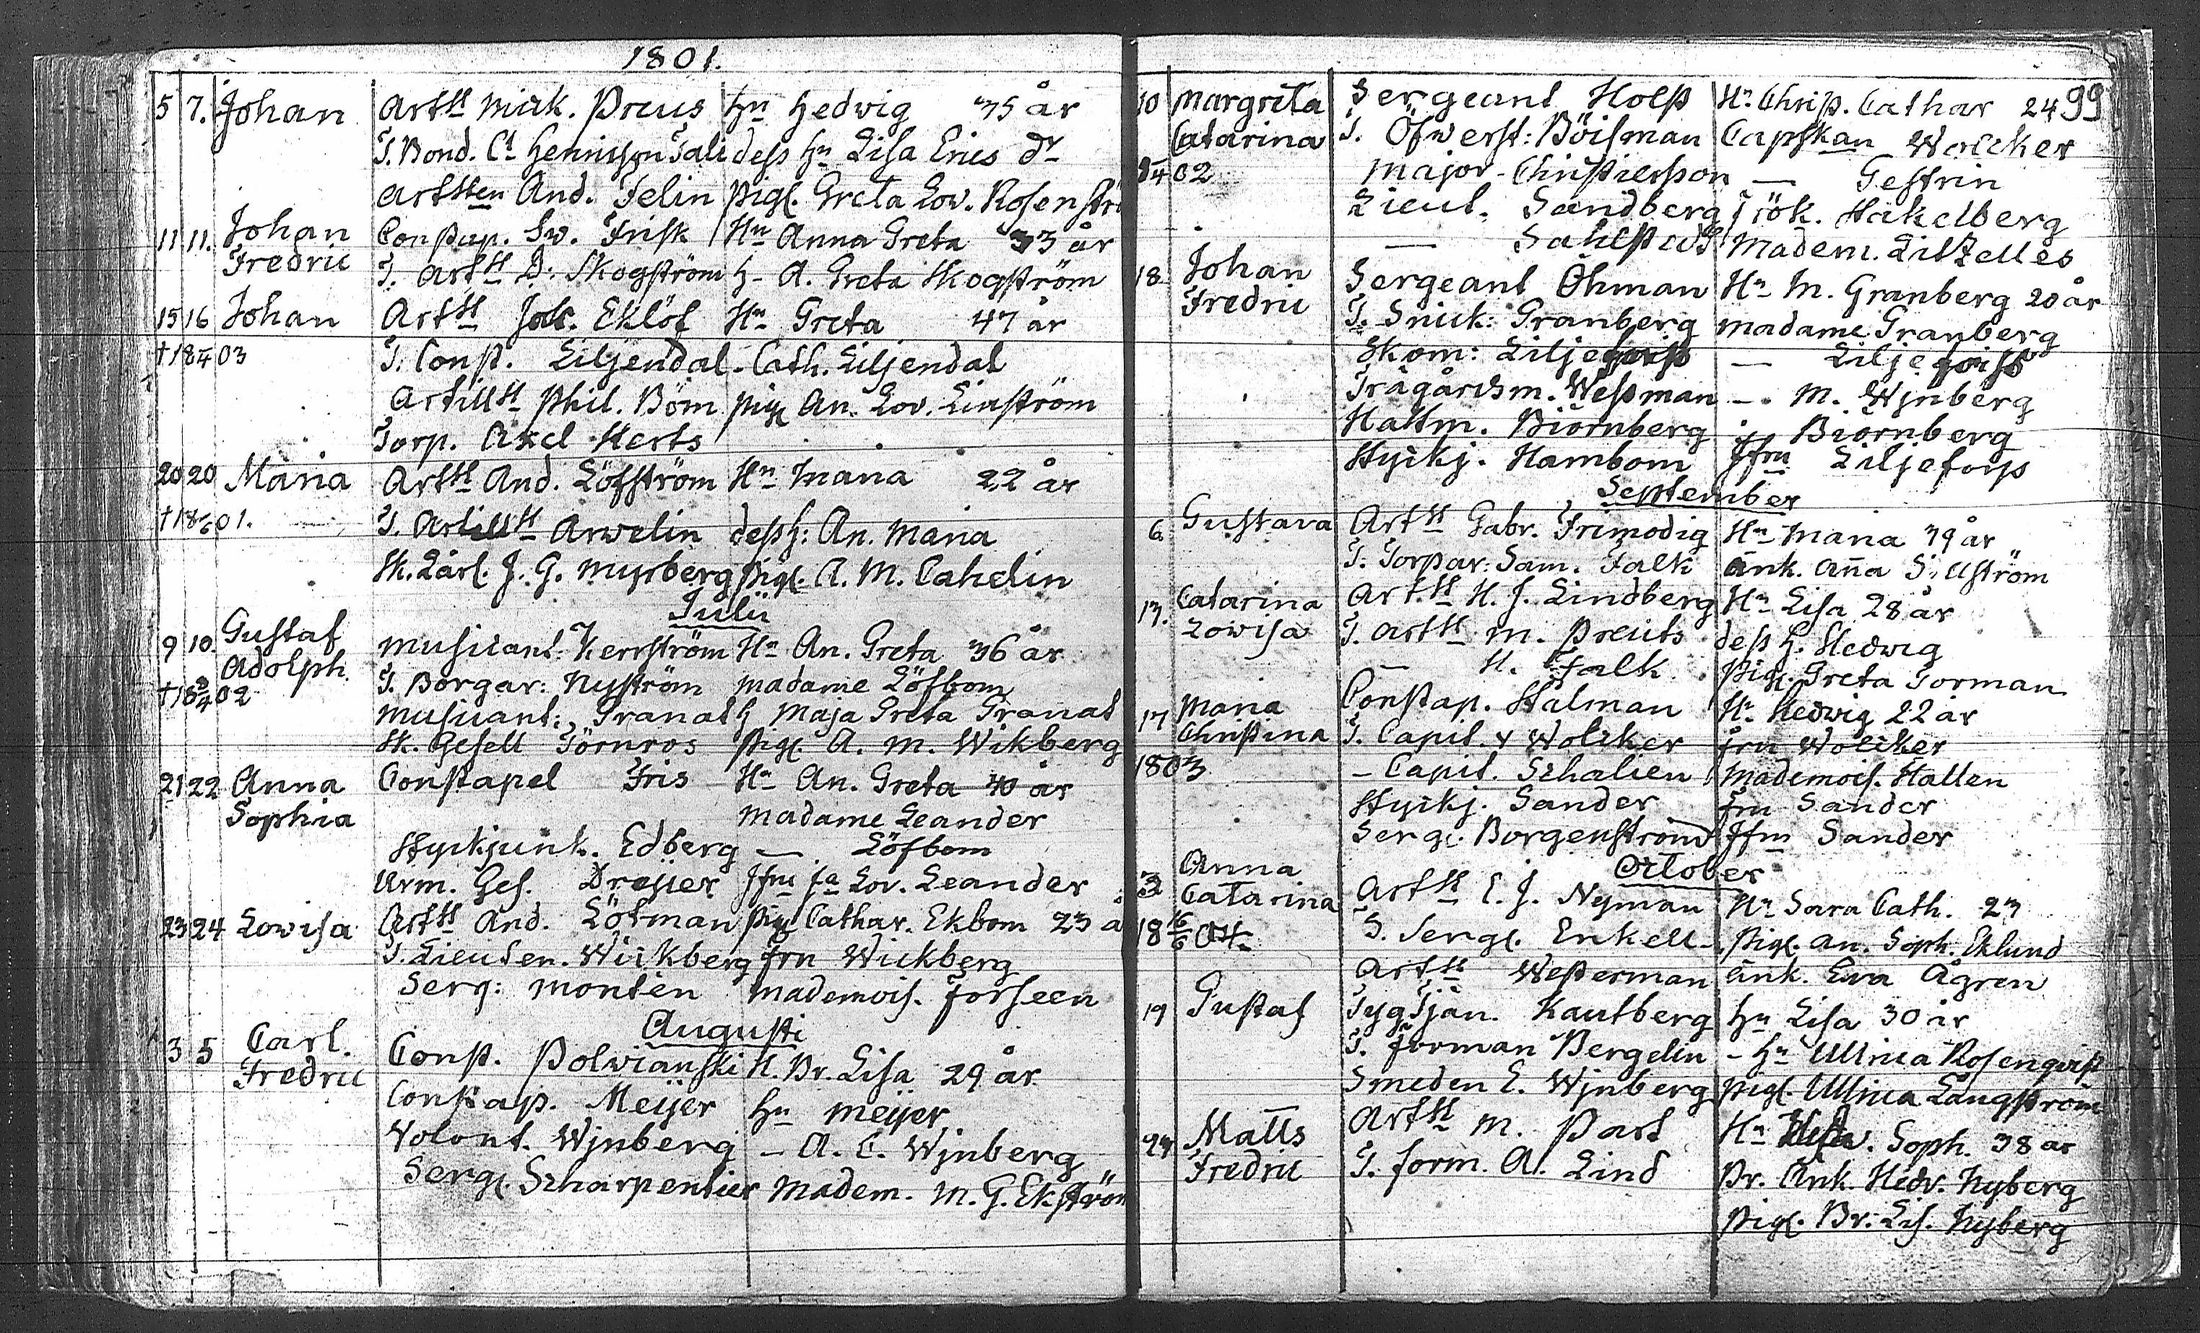 1801.
5 7. Johan Artst Mick. Preus Hn Hedwig 35 år
T. Bond. Ct Hennisson Tali dess Hn Lisa Erics dr
Artsten And. Felin pigl. Greta Lov. Rosenströ
11 11. Johan Fredric Constap. Sv. Frisk Hn Anna Greta 33 år
T. Artst D: Skogström h- A. Greta Skogström
15 16 Johan Artst Jac. Eklöf Hn Greta 47 år
† 18 4 03 T. Const. Liljendal - Cath. Liljendal
Artillst Phil. Böm pigl An. Lov. Linström
Torp. Axel Herts
20 20 Maria Artst And. Löfström Hn Maria 22 år
† 18 01. T. Artillst Arwelin dess h: An. Maria
Sk. Lärl. J. G. Myrberg pigl. A. M. Cahelin
Julii
9 10. Gustaf Adolph Musicant: Kerrström Hn An. Greta 36 år
† 18 02 T. Borgar: Nyström madame Löfbom
Musicant: Granat h Maja Greta Granat
Sk. Gesell Törnros pigl. A. M. Wikberg
21 22 Anna Sophia Constapel Fris Hn An. Greta 40 år
Madame Leander
Styckjunk. Edberg — Löfbom
Urm. Ges. Dreijer Jfru Lov. Leander
23 24 Lovisa Artst And. Löfman pig Cathar. Ekbom 23 å
T. Lieuten. Wickberg fru Wickberg
Serg: Montén Mademois. Forseen
Augusti
3 5 Carl. Fredric Const. Polvianski H. Br. Lisa 29 år
Constap. Meijer Hn Meijer
Volont. Wjnberg — A. C. Wjnberg
Serg. Scharpentier Madem. M. G. Ekström
99
10 Margreta Catarina Sergeant Holst Hn Christ. Cathar 24
T. Öfwerst: Böisman Capskan Wolcker
02 Major Christierson — Gestrin
Lieut. Sandberg Frök. Stakelberg
— Sahlstedt Madem. Litzelles
18 Johan Fredric Sergeant Öhman Hn M. Granberg 20 år
T. Snick: Granberg madame Granberg
Skom: Liljeqvist — Liljeqvist
Trägårdsm. Wessman — M. Wjnberg
Hattm. Biörnberg Biörnberg
Styckj. Hambom Jfru Liljefors
September
6 Gustava Artst Gabr. Frimodig Hn Maria 39 år
T. Torpar: Sam. Falk änk. Anna Sillström
13. Catarina Lowisa Artst H. J. Lindberg Hn Lisa 28 år
T. Artst M. Preuts dess h. Hedwig
— H. Falk pigl. Greta Forman
17 Maria Christina Constap. Stålman Hn Hedwig 22 år
T. Capit. v Wolcker fru Wolcker
1803 — Capit. Schalien Mademois. Hallen
Styckj. Sander fru Sander
Serg: Borgenström Jfru Sander
October
3 Anna Catarina Artst C. J. Nyman Hn Sara Cath. 23
18 04 T. Sergl. Enkell — pigl. An. Soph. Eklund
Artst Westerman änk. Eva Ågren
19 Gustaf Tygtjän. Kautberg Hn Lisa 30 år
T. Förman Bergelin — Hn Ullrica Rosenqvist
Smeden E. Wjnberg pigl. Ullrica Långström
Matts Fredric Artst M. Part Hn Soph. 38 år
T. form. A. Lind Br. Änk. Hedv. Nyberg
pigl. Br: Lis. Nyberg